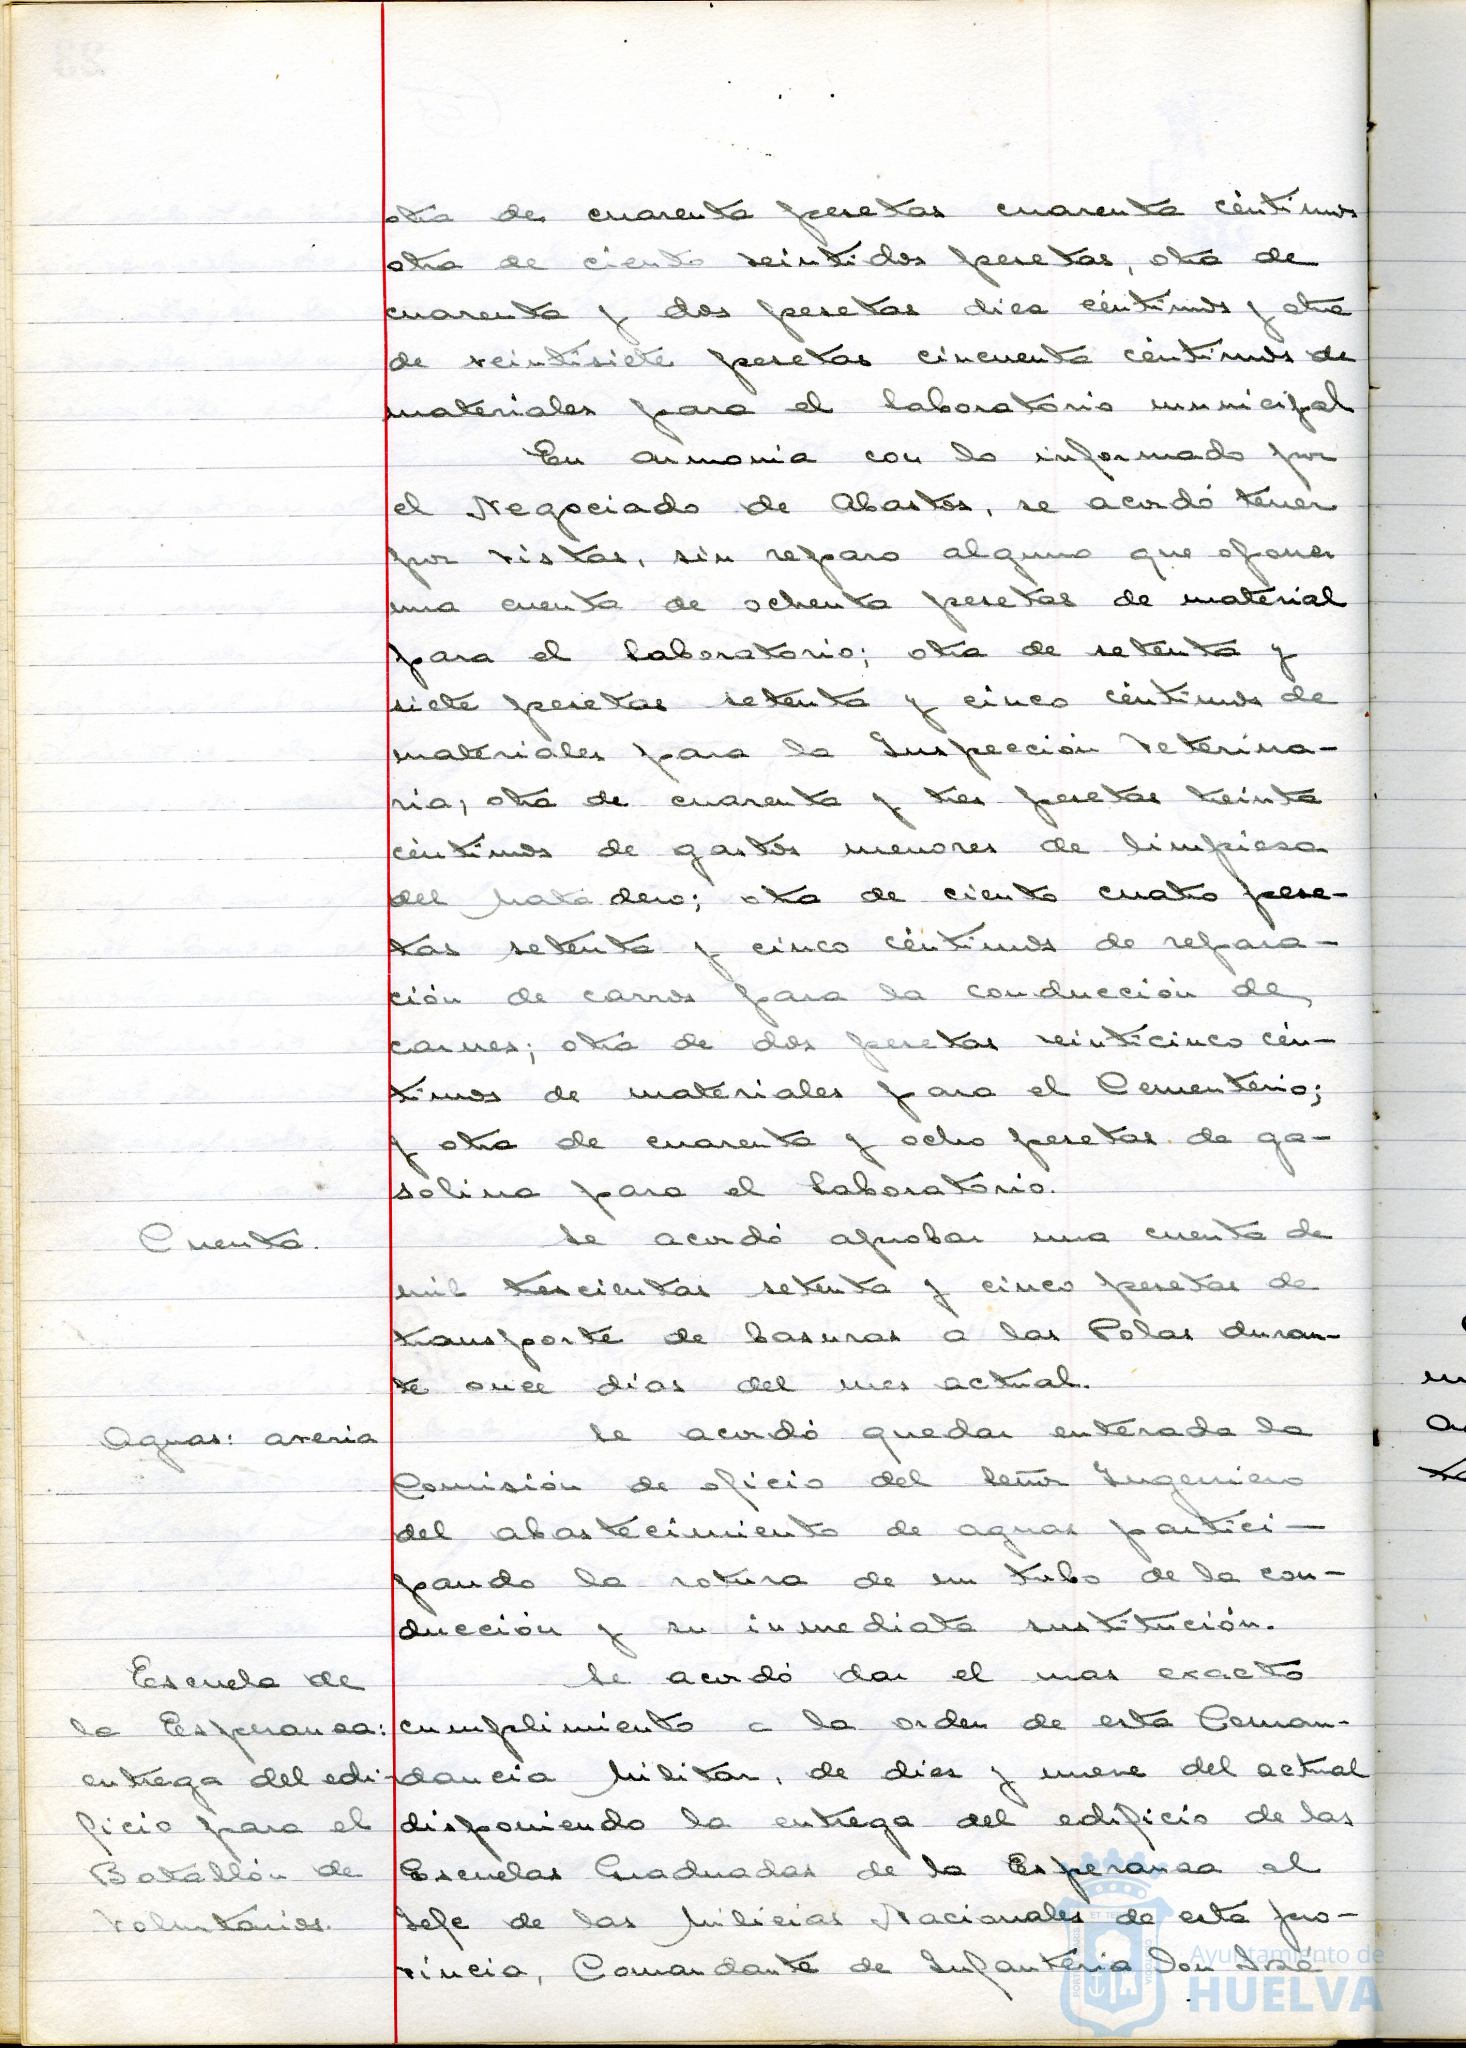 otra de cuarenta pesetas cuarenta céntimos
otra de ciento veintidos pesetas, otra de
cuarenta y dos pesetas diez céntimos y otra
de veintisiete pesetas cincuenta céntimos de
materiales para el laboratorio municipal
En armonia con lo informado por
el Negociado de Abastos, se acordó tener
por vistas, sin reparo alguno que oponer
una cuenta de ochenta pesetas de material
para el Laboratorio; otra de setenta y
siete pesetas setenta y cinco céntimos de
materiales para la Inspección Veterina-
ria; otra de cuarenta y tres pesetas treinta
céntimos de gastos menores de limpieza
del Matadero; otra de ciento cuatro pese-
tas setenta y cinco céntimos de repara-
ción de carros para la conducción de
carnes; otra de dos pesetas veinticinco cén-
timos de materiales para el Cementerio;
y otra de cuarenta y ocho pesetas de ga-
solina para el Laboratorio.
Cuenta.
Se acordó aprobar una cuenta de
mil trescientas setenta y cinco pesetas de
transporte de basuras a las Polas duran-
te once dias del mes actual.
Aguas: averia
Se acordó quedar enterada la
Comisión de oficio del Señor Ingeniero
del abastecimiento de aguas partici-
pando la rotura de un tubo de la con-
ducción y su inmediata sustitución.
Escuela de
la Esperanza:
entrega del edi-
ficio para el
Batallón de
Voluntarios.
Se acordó dar el mas exacto
cumplimiento a la orden de esta Coman-
dancia Militar, de diez y nueve del actual
disponiendo la entrega del edificio de las
Escuelas Graduadas de la Esperanza al
Jefe de las Milicias Nacionales de esta pro-
vincia, Comandante de Infanteria Don José
Ayuntamiento de
HUELVA